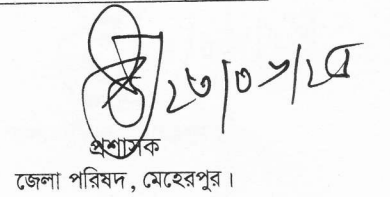 ২৩/০৯/২৫
প্রশাসক
জেলা পরিষদ, মেহেরপুর।